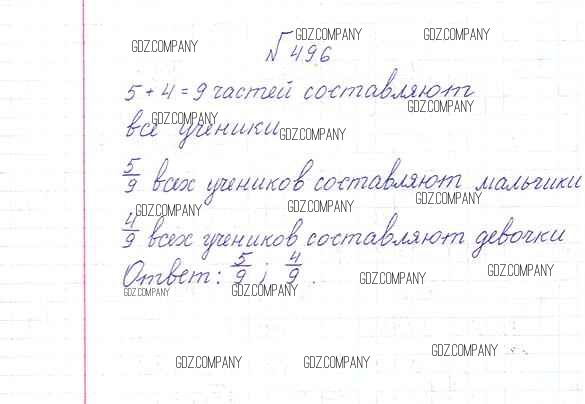 GDZ.COMPANY GDZ.COMPANY GDZ.COMPANY
№ 496
5 + 4 = 9 частей составляют
GDZ.COMPANY GDZ.COMPANY
все ученики
GDZ.COMPANY
5/9 всех учеников составляют мальчики
GDZ.COMPANY GDZ.COMPANY GDZ.COMPANY
4/9 всех учеников составляют девочки
Ответ: 5/9 ; 4/9 .
GDZ.COMPANY GDZ.COMPANY GDZ.COMPANY GDZ.COMPANY
GDZ.COMPANY GDZ.COMPANY GDZ.COMPANY